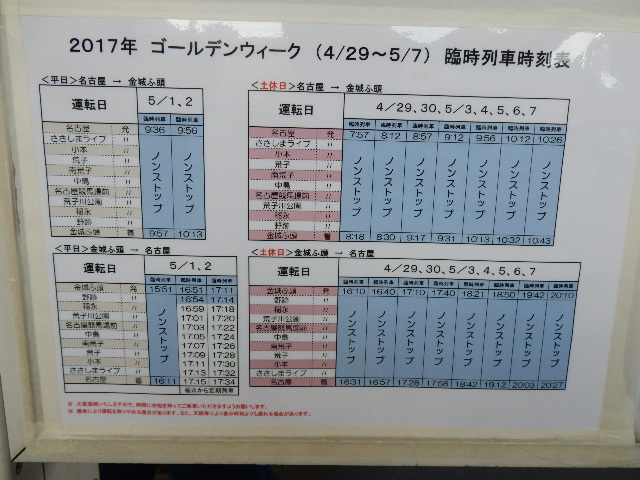 2017年 ゴールデンウィーク (4/29～5/7) 臨時列車時刻表
＜平日＞名古屋 → 金城ふ頭
運転日 5／1、2
臨時列車 臨時列車
名古屋 発 9:36 9:56
ささしまライブ 〃
小本 〃
荒子 〃
南荒子 〃
中島 〃
名古屋競馬場前 〃
荒子川公園 〃
稲永 〃
野跡 〃
ノンストップ ノンストップ
金城ふ頭 着 9:57 10:13
＜土休日＞名古屋 → 金城ふ頭
運転日 4／29、30、5／3、4、5、6、7
臨時列車 臨時列車 臨時列車 臨時列車 臨時列車 臨時列車 臨時列車
名古屋 発 7:57 8:12 8:57 9:12 9:56 10:12 10:26
ささしまライブ 〃
小本 〃
荒子 〃
南荒子 〃
中島 〃
名古屋競馬場前 〃
荒子川公園 〃
稲永 〃
野跡 〃
ノンストップ ノンストップ ノンストップ ノンストップ ノンストップ ノンストップ ノンストップ
金城ふ頭 着 8:18 8:30 9:17 9:31 10:13 10:32 10:43
＜平日＞金城ふ頭 → 名古屋
運転日 5／1、2
臨時列車 臨時列車 臨時列車
金城ふ頭 発 15:51 16:51 17:11
野跡 〃 16:54 17:14
稲永 〃 16:59 17:18
荒子川公園 〃 17:01 17:20
名古屋競馬場前 〃 17:03 17:22
中島 〃 17:05 17:24
南荒子 〃 17:07 17:26
荒子 〃 17:09 17:28
小本 〃 17:11 17:30
ささしまライブ 〃 17:13 17:32
ノンストップ
名古屋 着 16:11 17:15 17:34
稲永から定期列車
＜土休日＞金城ふ頭 → 名古屋
運転日 4／29、30、5／3、4、5、6、7
臨時列車 臨時列車 臨時列車 臨時列車 臨時列車 臨時列車 臨時列車 臨時列車
金城ふ頭 発 16:10 16:40 17:10 17:40 18:21 18:50 19:42 20:10
野跡 〃
稲永 〃
荒子川公園 〃
名古屋競馬場前 〃
中島 〃
南荒子 〃
荒子 〃
小本 〃
ささしまライブ 〃
ノンストップ ノンストップ ノンストップ ノンストップ ノンストップ ノンストップ ノンストップ ノンストップ
名古屋 着 16:31 16:57 17:28 17:58 18:42 19:12 20:03 20:27
※ 大変混雑いたしますので、時間に余裕を持ってご乗車いただきますようお願いします。
※ 都合により運転を取りやめる場合があります。また、天候等により時刻よりも遅れる場合があります。